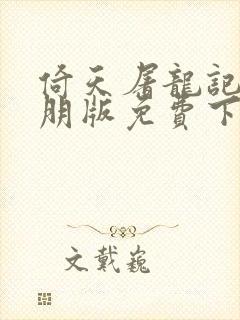 倚天屠龍記
朋版免費下
文戴巍